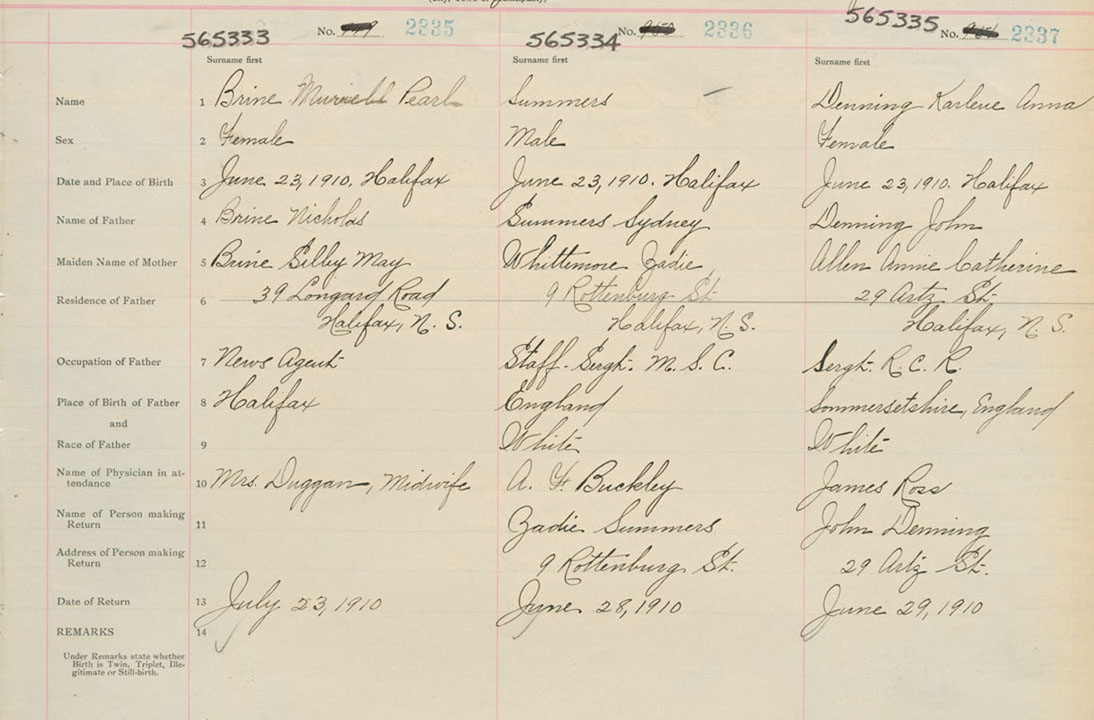 565333 No. 2335 565334 No. 2336 565335 No. 2337
Surname first Surname first Surname first
Name 1 Brine Pearl Summers Denning Karleue Anna
Sex 2 Female Male Female
Date and Place of Birth 3 June 23, 1910. Halifax June 23, 1910. Halifax June 23, 1910. Halifax
Name of Father 4 Brine Nicholas Summers Sydney Denning John
Maiden Name of Mother 5 Brine Silby May Whittimore Zadie Allen Annie Catherine
Residence of Father 6 39 Longard Road 9 Rottenburg St. 29 Artz St.
Halifax, N. S. Halifax, N. S. Halifax, N. S.
Occupation of Father 7 News Agent Staff-Sergt. M. S. C. Sergt. R. C. R.
Place of Birth of Father 8 Halifax England Sommersetshire, England
and
Race of Father 9 White White
Name of Physician in at-
tendance 10 Mrs. Duggan, Midwife A. F. Buckley James Ross
Name of Person making
Return 11 Zadie Summers John Denning
Address of Person making
Return 12 9 Rottenburg St. 29 Artz St.
Date of Return 13 July 23, 1910 June 28, 1910 June 29, 1910
REMARKS 14
Under Remarks state whether
Birth is Twin, Triplet, Ille-
gitimate or Still-birth.